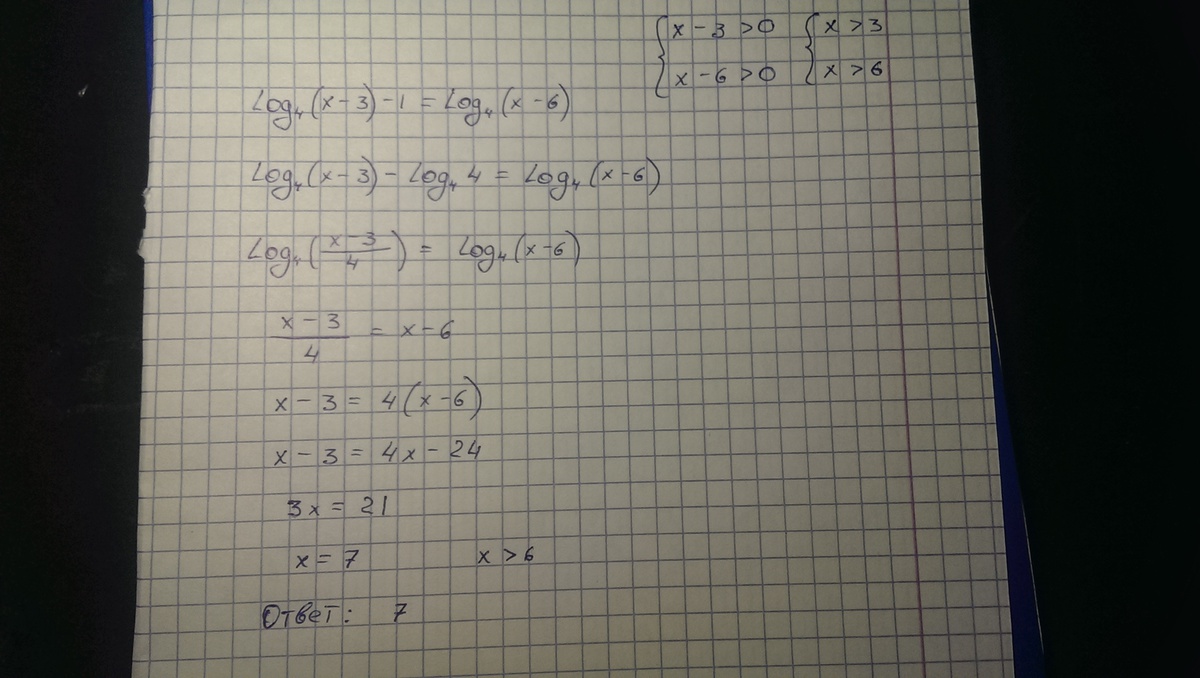 { x - 3 > 0 { x > 3
{ x - 6 > 0 { x > 6
Log₄(x-3)-1 = Log₄(x-6)
Log₄(x-3) - Log₄ 4 = Log₄(x-6)
Log₄((x-3)/4) = Log₄(x-6)
(x-3)/4 = x-6
x-3 = 4(x-6)
x-3 = 4x-24
3x = 21
x = 7 x > 6
Ответ: 7